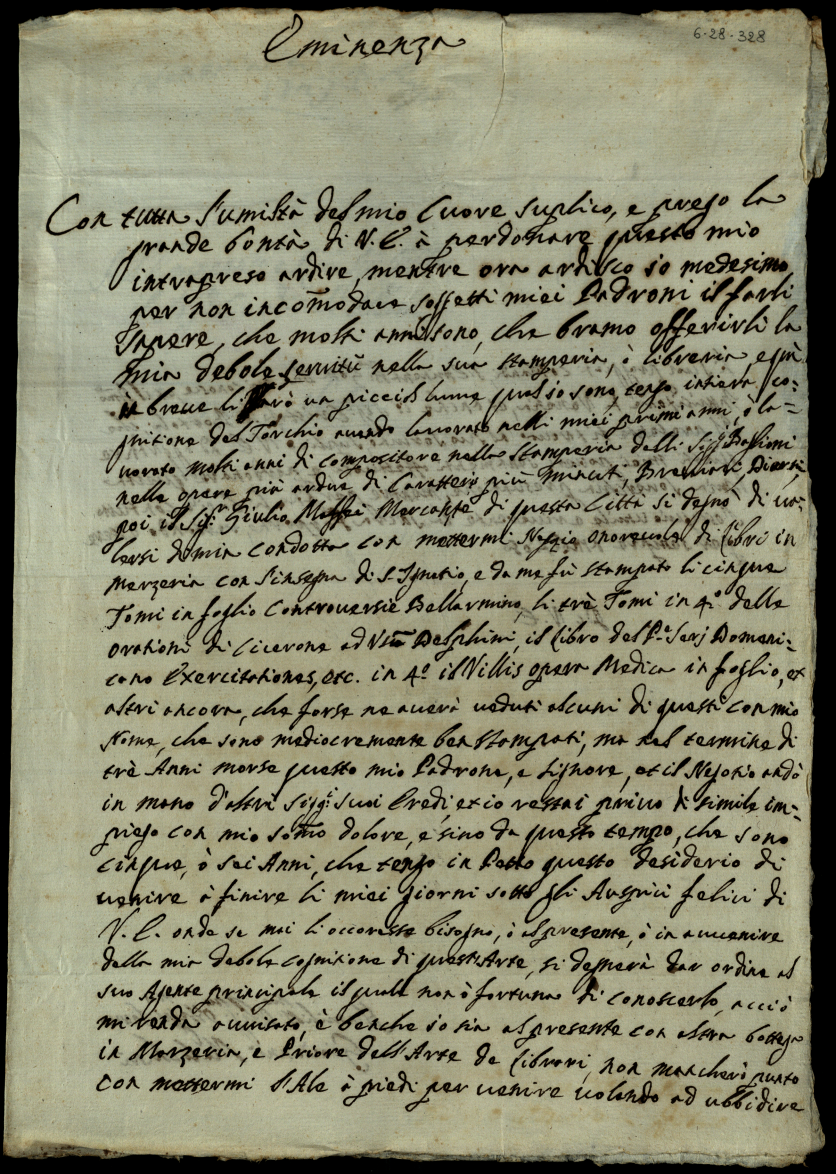 6-28-328
Eminenza
Con tutta l'umiltà del mio Cuore suplico, e prego la
grande bontà di V. E. à perdonare questo mio
intrapreso ardire, mentre ora ardisco io medesimo
per non incom̄odare soggetti miei Padroni il farli
sapere, che molti anni sono, che bramo offerirli la
mia debole servitù nella sua stamperia, ò libreria, e quì
in breve li darò un picciol lume qual io sono, tengo intiera co:
gnitione del Torchio avendo lavorato nelli miei primi anni, ò la=
vorato molti anni di compositore nella stamperia delli Sigg.ri Baglioni
nelle opere più ardue di Carattere più minuti, Breviari, Diurni,
poi il Sig.r Giulio Maffei Mercante di questa Città si degnò di va:
lersi di mia condotta con mettermi Negozio onorevole di libri in
Merzeria con l'insegna di S. Ignatio, e da me fù stampato li cinque
Tomi in foglio Controversie Bellarmino, li trè Tomi in 4.o delle
orationi di Cicerone ad Usū Delphini, il libro del P.e Serj Domeni:
cano Exercitationes, etc. in 4.o il Villis opera Medica in foglio, et
altri ancora, che forse ne averà veduti alcuni di questi con mio
Nome, che sono mediocremente ben stampati, ma nel termine di
trè Anni morse questo mio Padrone, e Signore, et il Negotio andò
in mano d'altri Sigg.ri suoi Eredi, et io restai privo di simile im:
piego con mio som̄o dolore, e sino da questo tempo, che sono
cinque, ò sei Anni, che tengo in Petto questo desiderio di
venire à finire li miei giorni sotto gli Auspici felici di
V. E. onde se mai li occoresse bisogno, ò al presente, ò in avvenire
della mia debole cognitione di quest'Arte, si degnerà dar ordine al
suo Agente principale il quale non ò fortuna di conoscerlo, acciò
mi renda avvisato, e benche io sia al presente con altra bottega
in Merzeria, e Priore dell'Arte de librari, non mancherò punto
con mettermi l'Ale à piedi per venire volando ad ubbidire